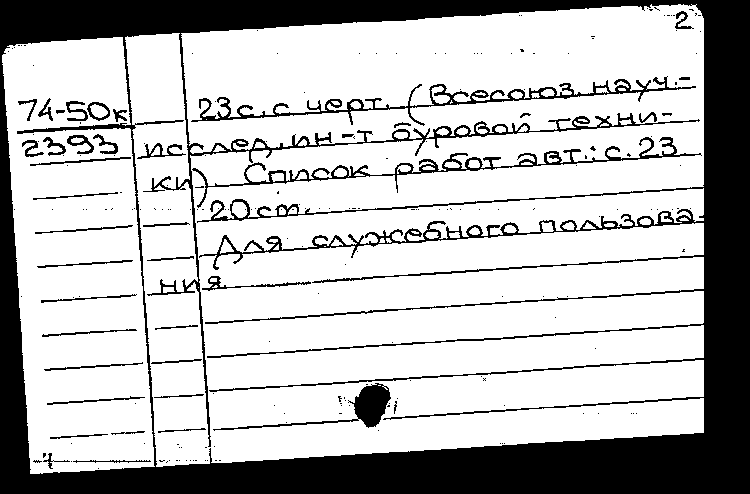 2
74-50к 23с. с черт. (Всесоюз. науч.-
2393 исслед. ин-т буровой техни-
ки). Список работ авт.: с. 23
20 см.
Для служебного пользова-
ния.